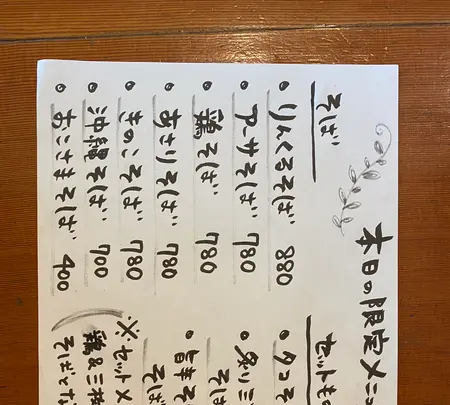 本日の限定メニュ
そば
• りんくるそば 880
• アーサそば 780
• 鶏そば 780
• あさりそば 780
• きのこそば 780
• 沖縄そば 700
• おこさまそば 400
セットも
• タコそ
• 炙りミ
そば
• 旨辛そ
そば
※セットメ
鶏&三枚
そばとな